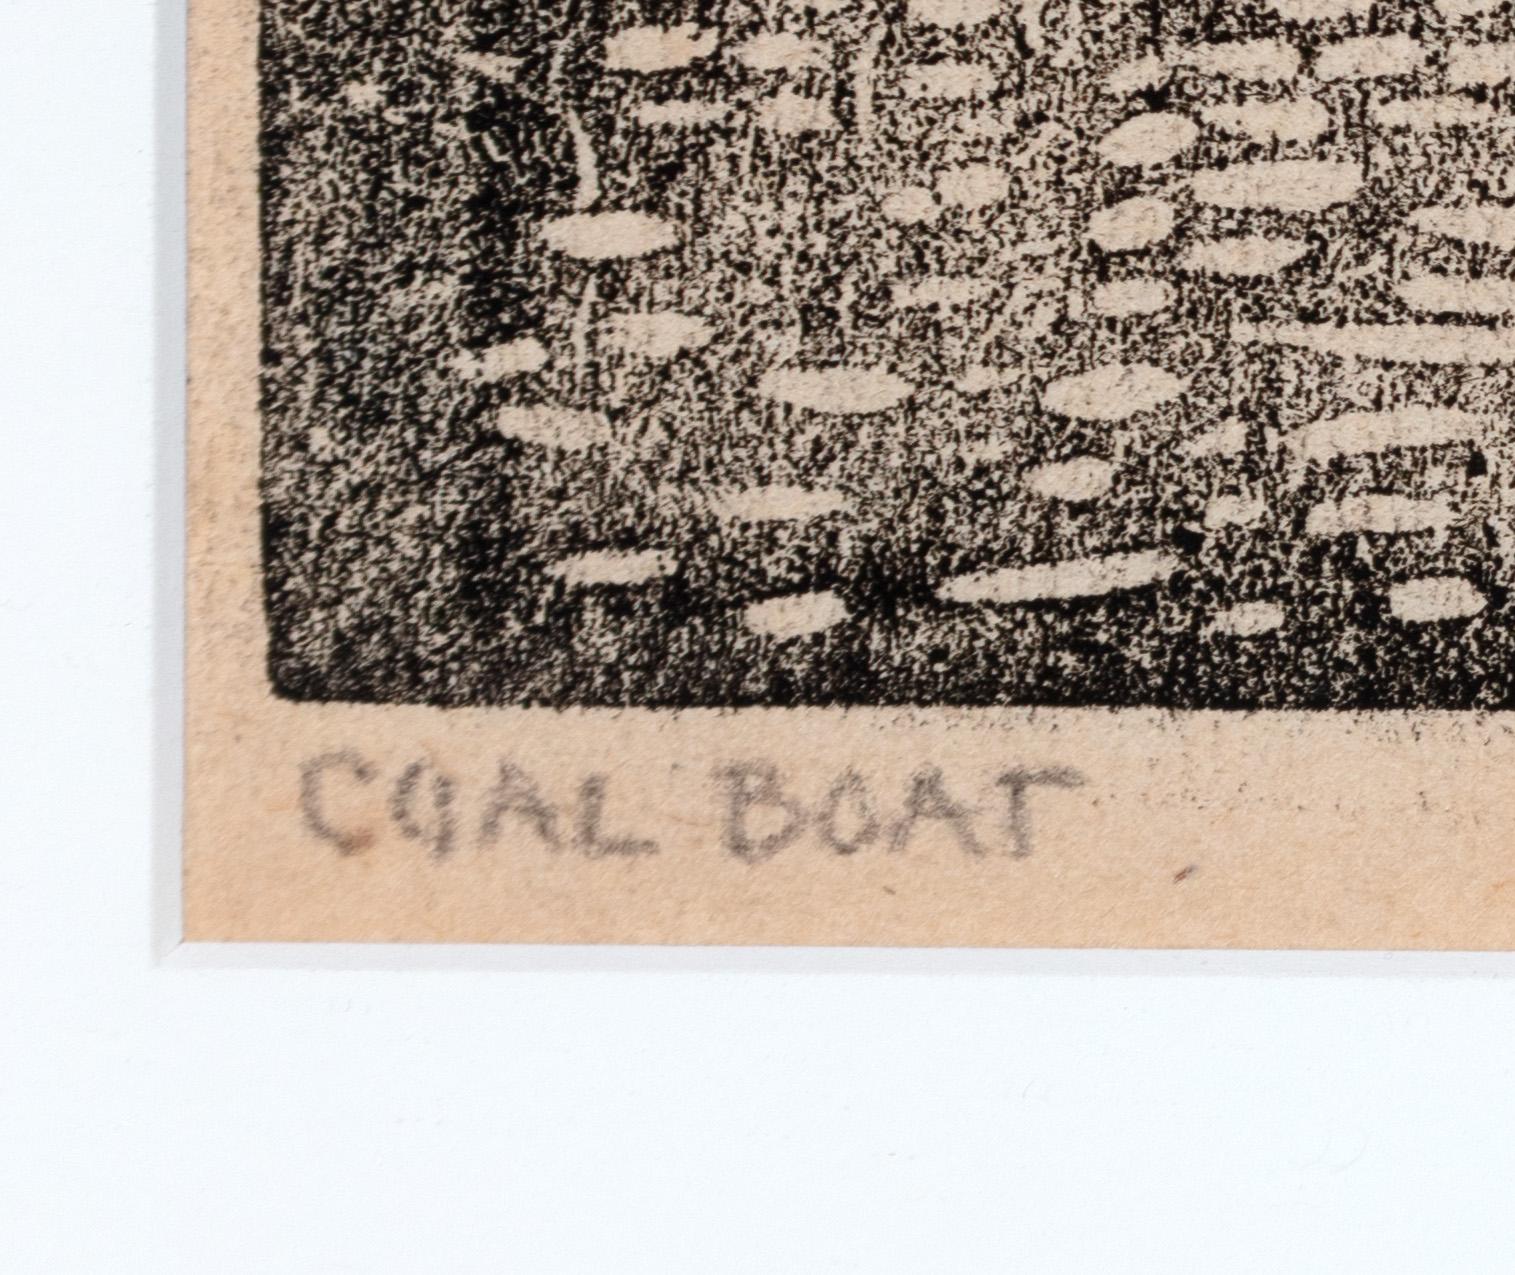 COAL BOAT